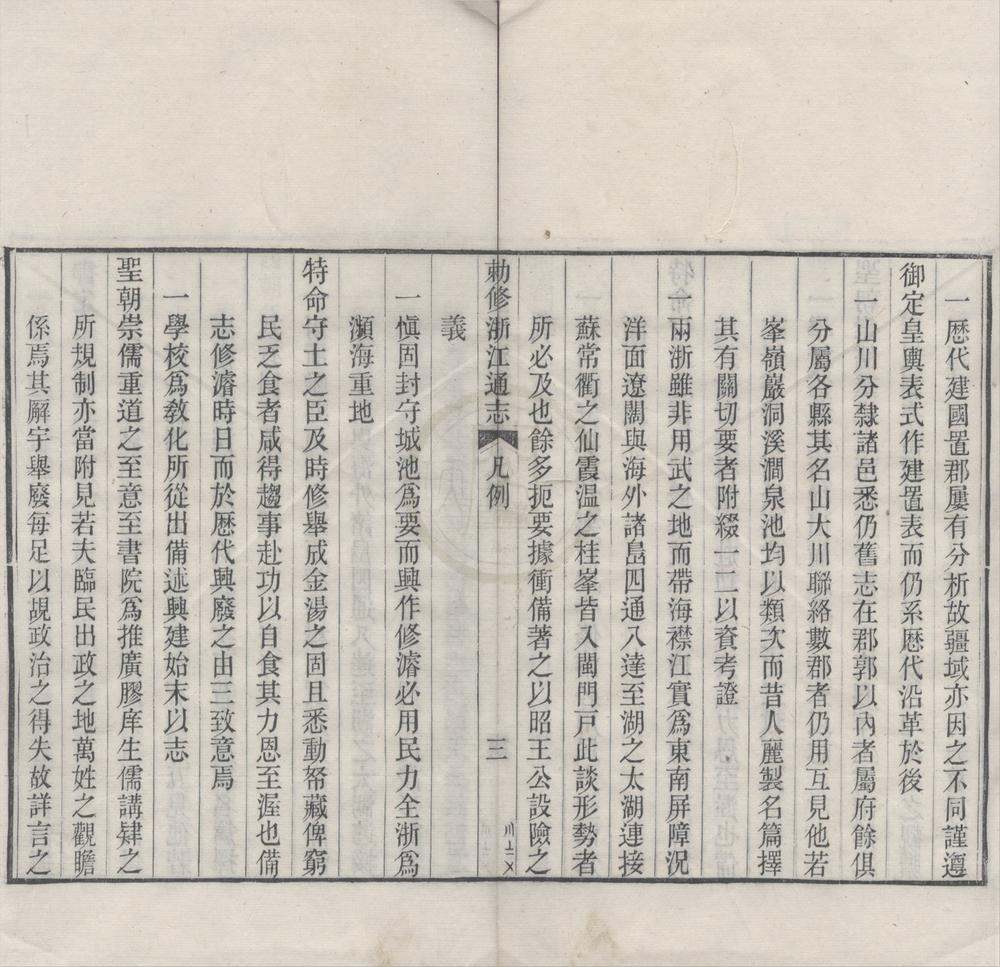 一歴代建國置郡屢有分析故疆域亦因之不同謹遵
御定皇輿表式作建置表而仍系歴代沿革於後
一山川分隸諸邑悉仍舊志在郡郭以內者屬府餘俱
分屬各縣其名山大川聯絡數郡者仍用互見他若
峯嶺巖洞溪澗泉池均以類次而昔人麗製名篇擇
其有關切要者附綴一二以資考證
一兩浙雖非用武之地而帶海襟江實爲東南屏障況
洋面遼闊與海外諸島四通八達至湖之太湖連接
蘇常衢之仙霞温之桂峯皆入閩門戸此談形勢者
所必及也餘多扼要據衝備著之以昭王公設險之
勅修浙江通志 凡例 三
義
一愼固封守城池爲要而興作修濬必用民力全浙爲
瀕海重地
特命守土之臣及時修舉成金湯之固且悉動帑藏俾窮
民乏食者咸得趨事赴功以自食其力恩至渥也備
志修濬時日而於歴代興廢之由三致意焉
一學校爲敎化所從出備述興建始末以志
聖朝崇儒重道之至意至書院爲推廣膠庠生儒講肄之
所規制亦當附見若夫臨民出政之地萬姓之觀瞻
係焉其廨宇舉廢每足以覘政治之得失故詳言之